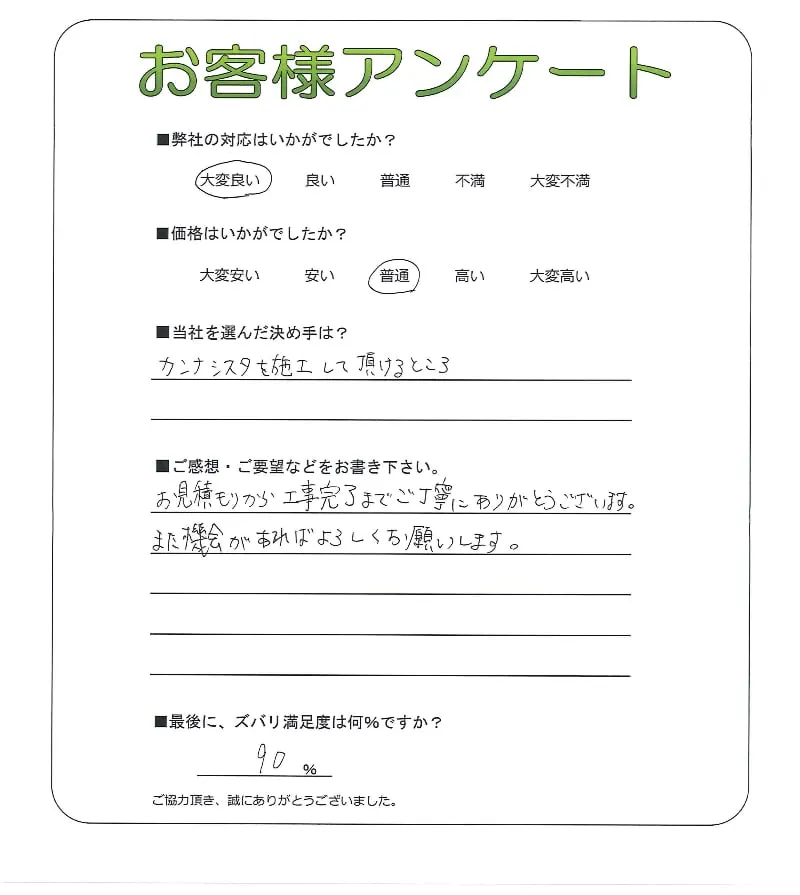 お客様アンケート
■弊社の対応はいかがでしたか？
大変良い 良い 普通 不満 大変不満
■価格はいかがでしたか？
大変安い 安い 普通 高い 大変高い
■当社を選んだ決め手は？
カンナシスタを施工して頂けるところ
■ご感想・ご要望などをお書き下さい。
お見積もりから工事完了までご丁寧にありがとうございます。
また機会があればよろしくお願いします。
■最後に、ズバリ満足度は何％ですか？
90 ％
ご協力頂き、誠にありがとうございました。